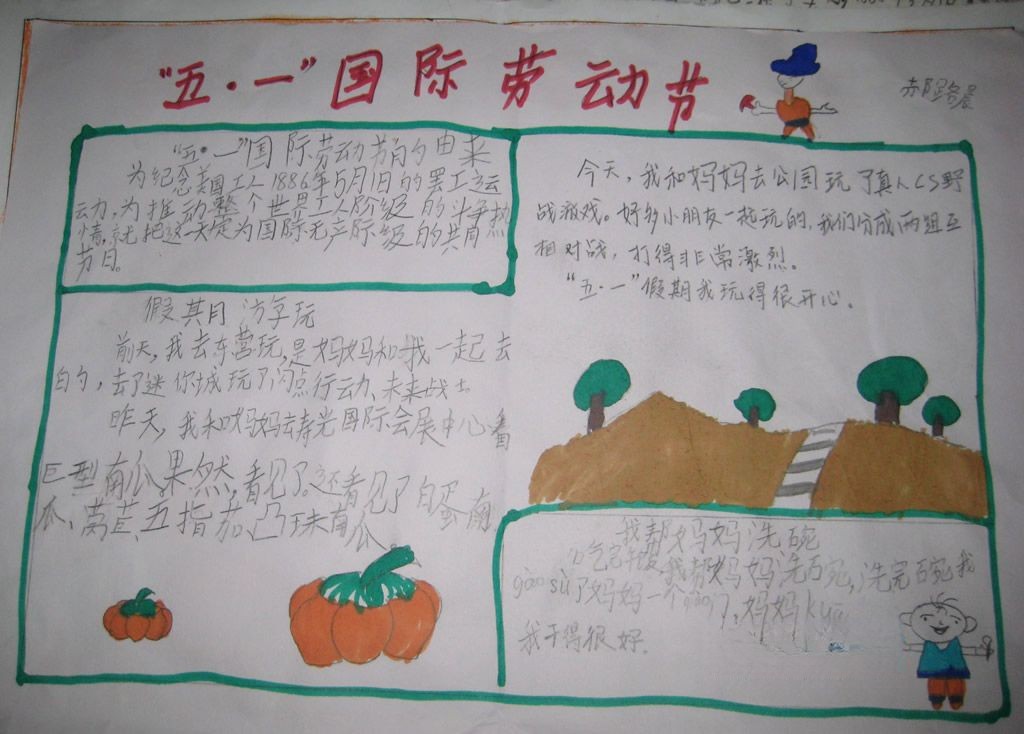 “五·一”国际劳动节
“五·一”国际劳动节的由来
为纪念美国工人1886年5月1日的罢工运
动,为推动整个世界工人阶级的斗争热
情,就把这一天定为国际无产阶级的共同
节日。
今天,我和妈妈去公园玩了真人CS野
战游戏。好多小朋友一起玩的,我们分成两组互
相对战,打得非常激烈。
“五·一”假期我玩得很开心。
假期游玩
前天,我去东营玩,是妈妈和我一起去
的,去了迷你城玩了闪点行动、未来战士
昨天,我和妈妈去寿光国际会展中心看
巨型南瓜。果然,看见了。还看见了白蛋南
瓜、莴苣、五指茄、凸珠南瓜
我帮妈妈洗碗
吃完午饭,我帮妈妈洗碗,洗完碗我
gàosù了妈妈一个,妈妈kuā
我干得很好.